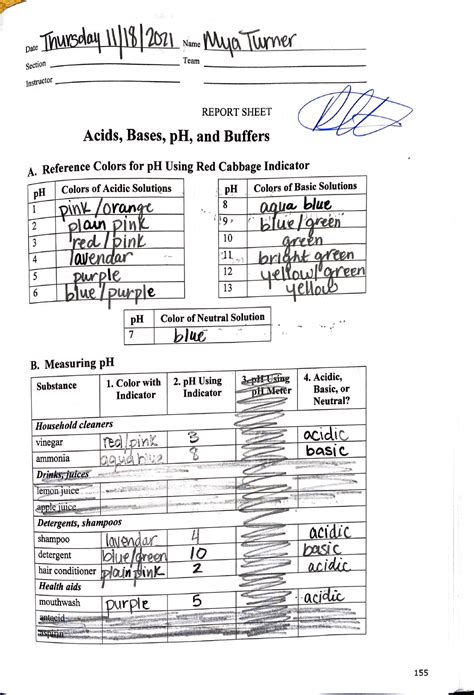 Date Thursday 11/18/2021 Name Mya Turner
Section Team
Instructor
REPORT SHEET
Acids, Bases, pH, and Buffers
A. Reference Colors for pH Using Red Cabbage Indicator
pH Colors of Acidic Solutions
1 pink/orange
2 plain pink
3 red/pink
4 lavendar
5 purple
6 blue/purple
pH Colors of Basic Solutions
8 aqua blue
9 blue/green
10 green
11 bright green
12 yellow/green
13 yellow
pH Color of Neutral Solution
7 blue
B. Measuring pH
Substance 1. Color with Indicator 2. pH Using Indicator 3. pH Using pH Meter 4. Acidic, Basic, or Neutral?
Household cleaners
vinegar red/pink 3 acidic
ammonia aqua blue 8 basic
Drinks, juices
lemon juice
apple juice
Detergents, shampoos
shampoo lavendar 4 acidic
detergent blue/green 10 basic
hair conditioner plain pink 2 acidic
Health aids
mouthwash purple 5 acidic
antacid
aspirin
155